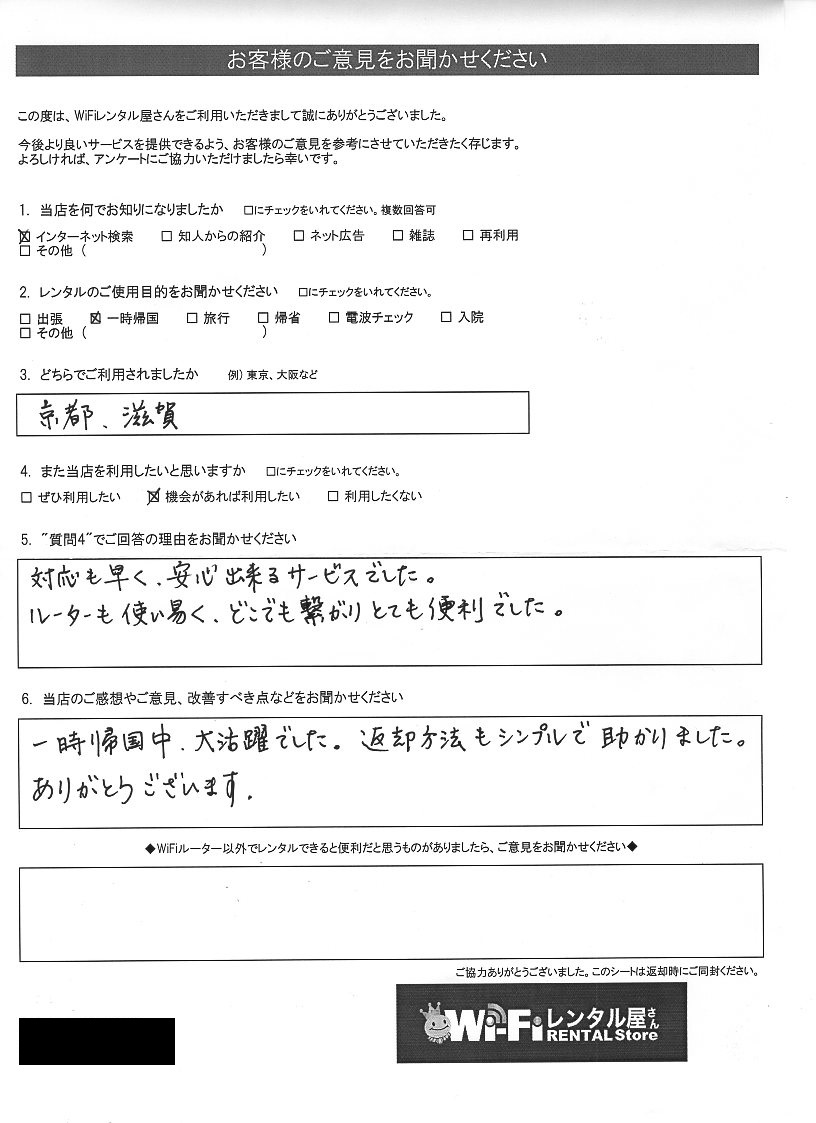 お客様のご意見をお聞かせください
この度は、WiFiレンタル屋さんをご利用いただきまして誠にありがとうございました。
今後より良いサービスを提供できるよう、お客様のご意見を参考にさせていただきたく存じます。
よろしければ、アンケートにご協力いただけましたら幸いです。
1. 当店を何でお知りになりましたか □にチェックをいれてください。複数回答可
☒ インターネット検索 □ 知人からの紹介 □ ネット広告 □ 雑誌 □ 再利用
□ その他 ( )
2. レンタルのご使用目的をお聞かせください □にチェックをいれてください。
□ 出張 ☒ 一時帰国 □ 旅行 □ 帰省 □ 電波チェック □ 入院
□ その他 ( )
3. どちらでご利用されましたか 例）東京、大阪など
京都、滋賀
4. また当店を利用したいと思いますか □にチェックをいれてください。
□ ぜひ利用したい ☒ 機会があれば利用したい □ 利用したくない
5. "質問4"でご回答の理由をお聞かせください
対応も早く、安心出来るサービスでした。
ルーターも使い易く、どこでも繋がりとても便利でした。
6. 当店のご感想やご意見、改善すべき点などをお聞かせください
一時帰国中、大活躍でした。返却方法もシンプルで助かりました。
ありがとうございます.
◆WiFiルーター以外でレンタルできると便利だと思うものがありましたら、ご意見をお聞かせください◆
ご協力ありがとうございました。このシートは返却時にご同封ください。
Wi-Fiレンタル屋さん
RENTAL Store